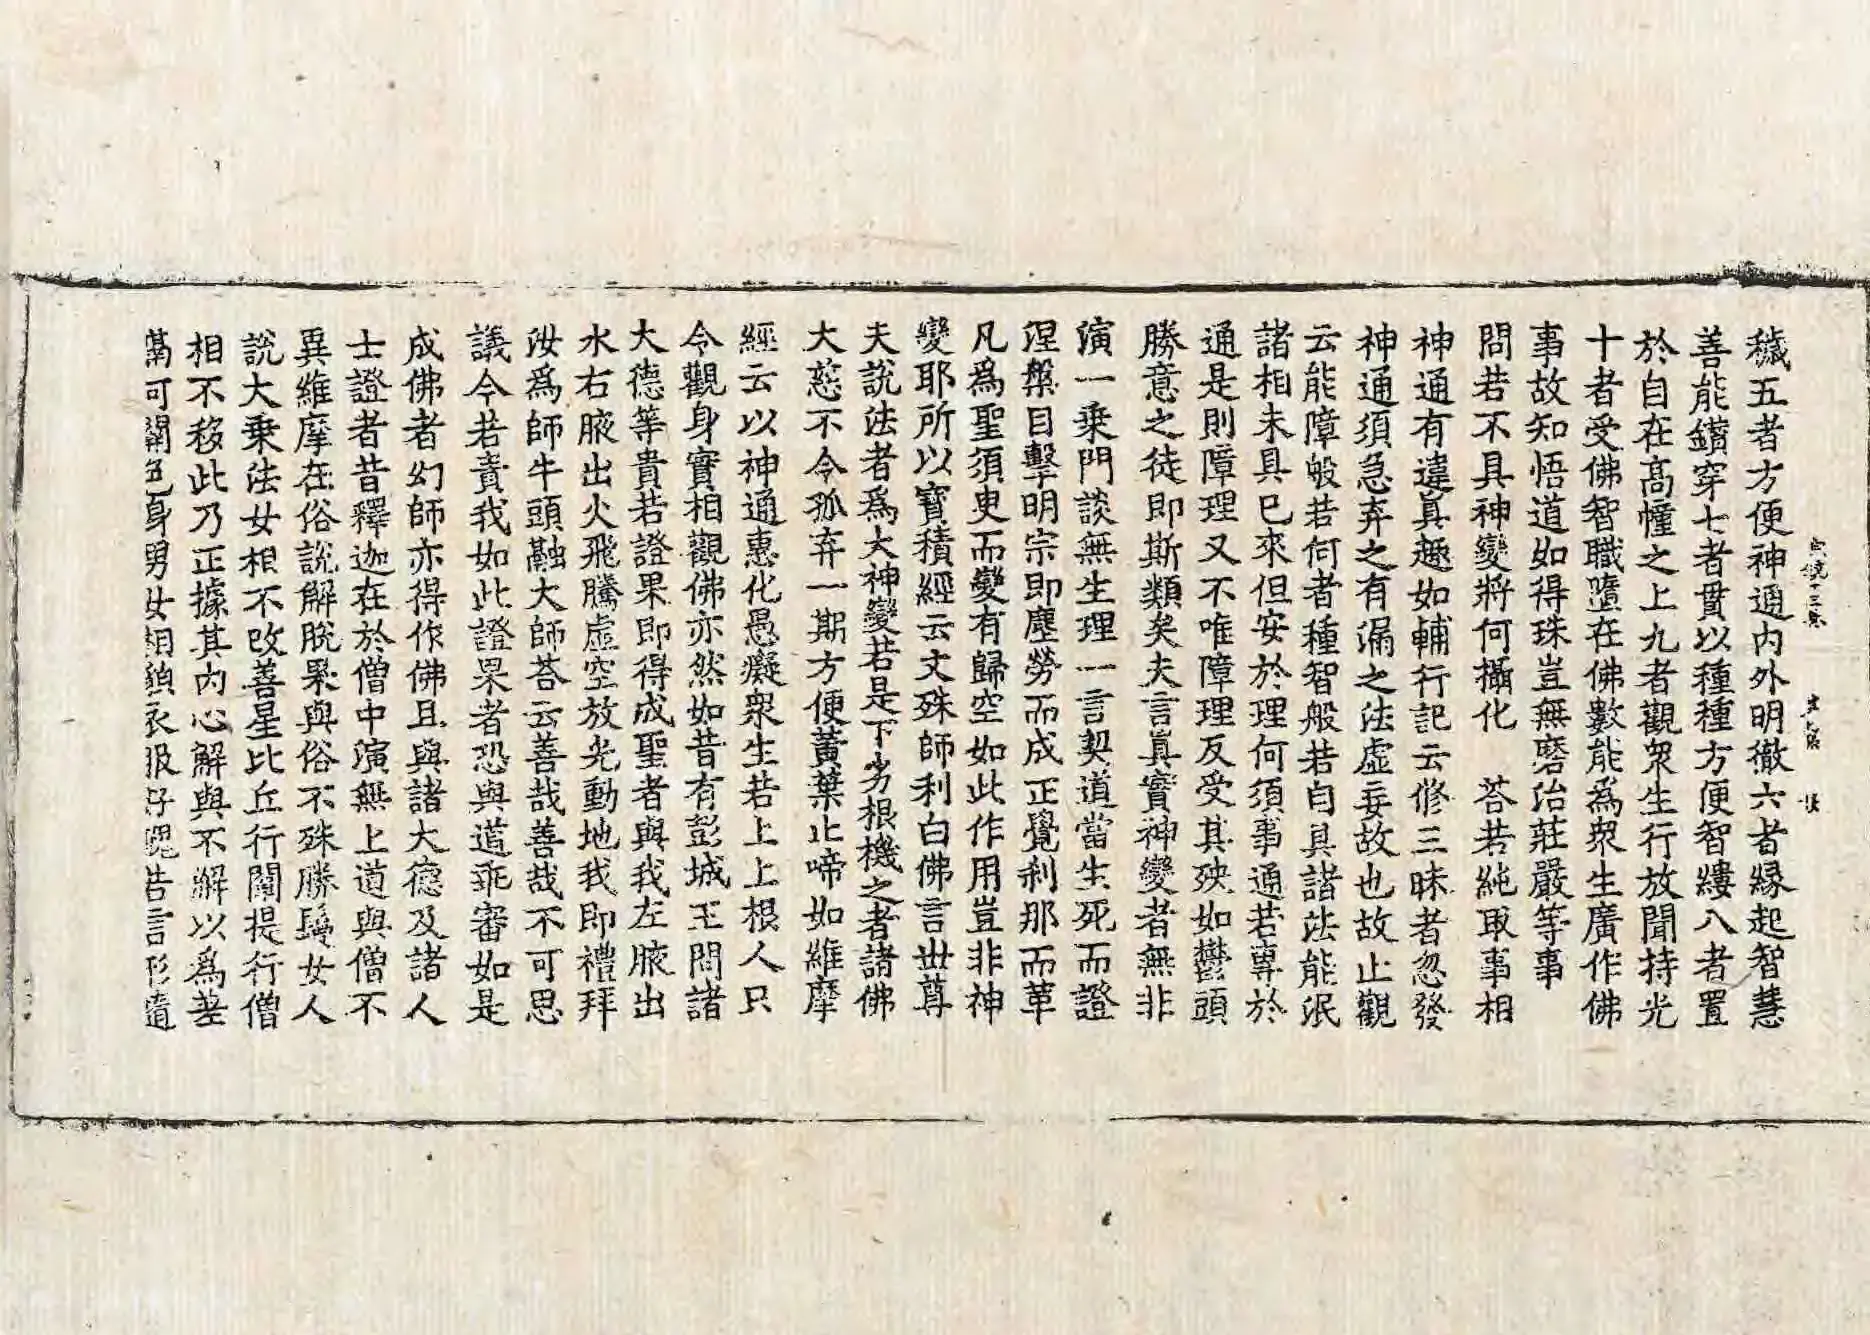 穢五者方便神通內外明徹六者緣起智慧
善能鑽穿七者貫以種種方便智縷八者置
於自在高幢之上九者觀衆生行放聞持光
十者受佛智職墮在佛數能爲衆生廣作佛
事故知悟道如得珠豈無磨治莊嚴等事
問若不具神變將何攝化 荅若純取事相
神通有違眞趣如輔行記云修三昧者忽發
神通須急弃之有漏之法虛妄故也故止觀
云能障般若何者種智般若自具諸法能泯
諸相未具已來但安於理何須事通若專於
通是則障理又不唯障理反受其殃如鬱頭
勝意之徒即斯類矣夫言眞實神變者無非
演一乗門談無生理一言契道當生死而證
涅槃目擊明宗即塵勞而成正覺刹那而革
凡爲聖須臾而變有歸空如此作用豈非神
變耶所以寶積經云文殊師利白佛言世尊
夫說法者爲大神變若是下劣根機之者諸佛
大慈不令孤弃一期方便黃葉止啼如維摩
經云以神通惠化愚癡衆生若上上根人只
令觀身實相觀佛亦然如昔有彭城王問諸
大德等貴若證果即得成聖者與我左腋出
水右腋出火飛騰虛空放光動地我即禮拜
汝爲師牛頭融大師荅云善哉善哉不可思
議今若責我如此證果者恐與道乖審如是
成佛者幻師亦得作佛且與諸大德及諸人
士證者昔釋迦在於僧中演無上道與僧不
異維摩在俗說解脫果與俗不殊勝鬘女人
說大乗法女相不改善星比丘行闡提行僧
相不移此乃正據其內心解與不解以爲差
隔可關色身男女相貌衣服好醜若言形遺